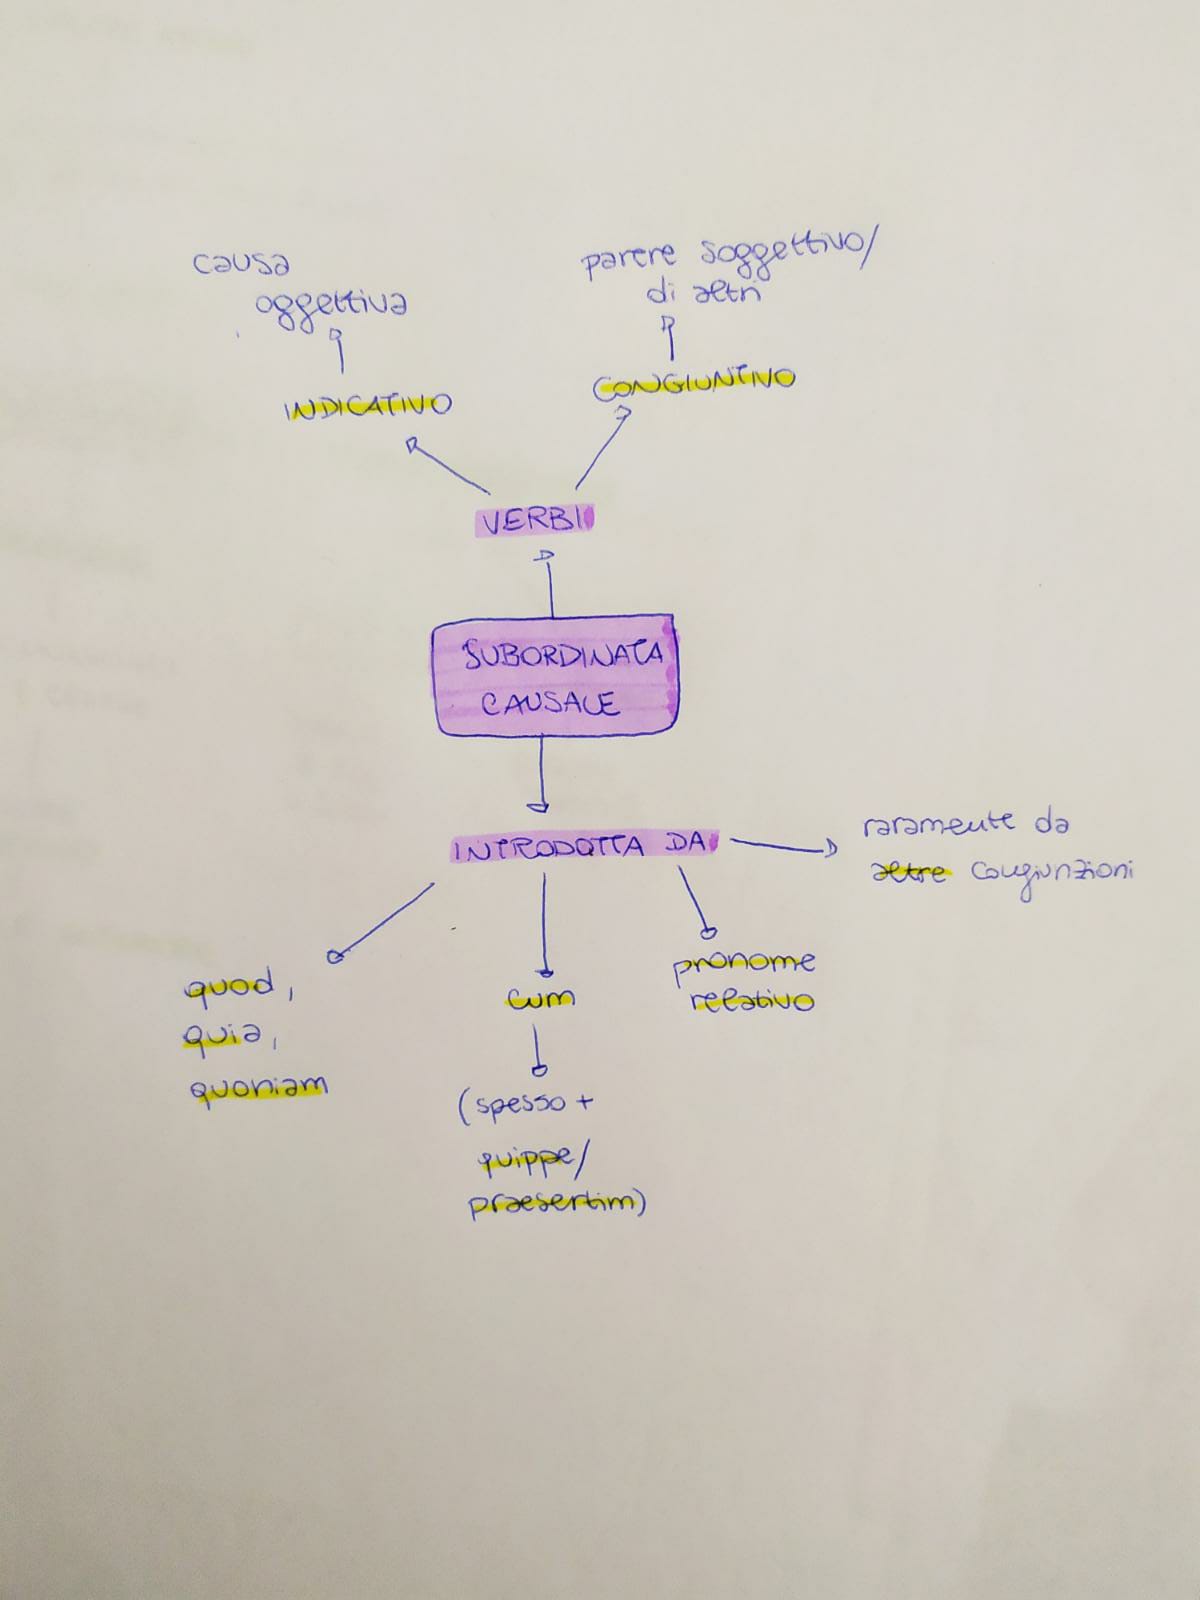 causa
oggettiva
parere soggettivo/
di altri
INDICATIVO
CONGIUNTIVO
VERBI
SUBORDINATA
CAUSALE
INTRODOTTA DA
raramente da
altre congiunzioni
quod,
quia,
quoniam
cum
(spesso +
quippe/
praesertim)
pronome
relativo